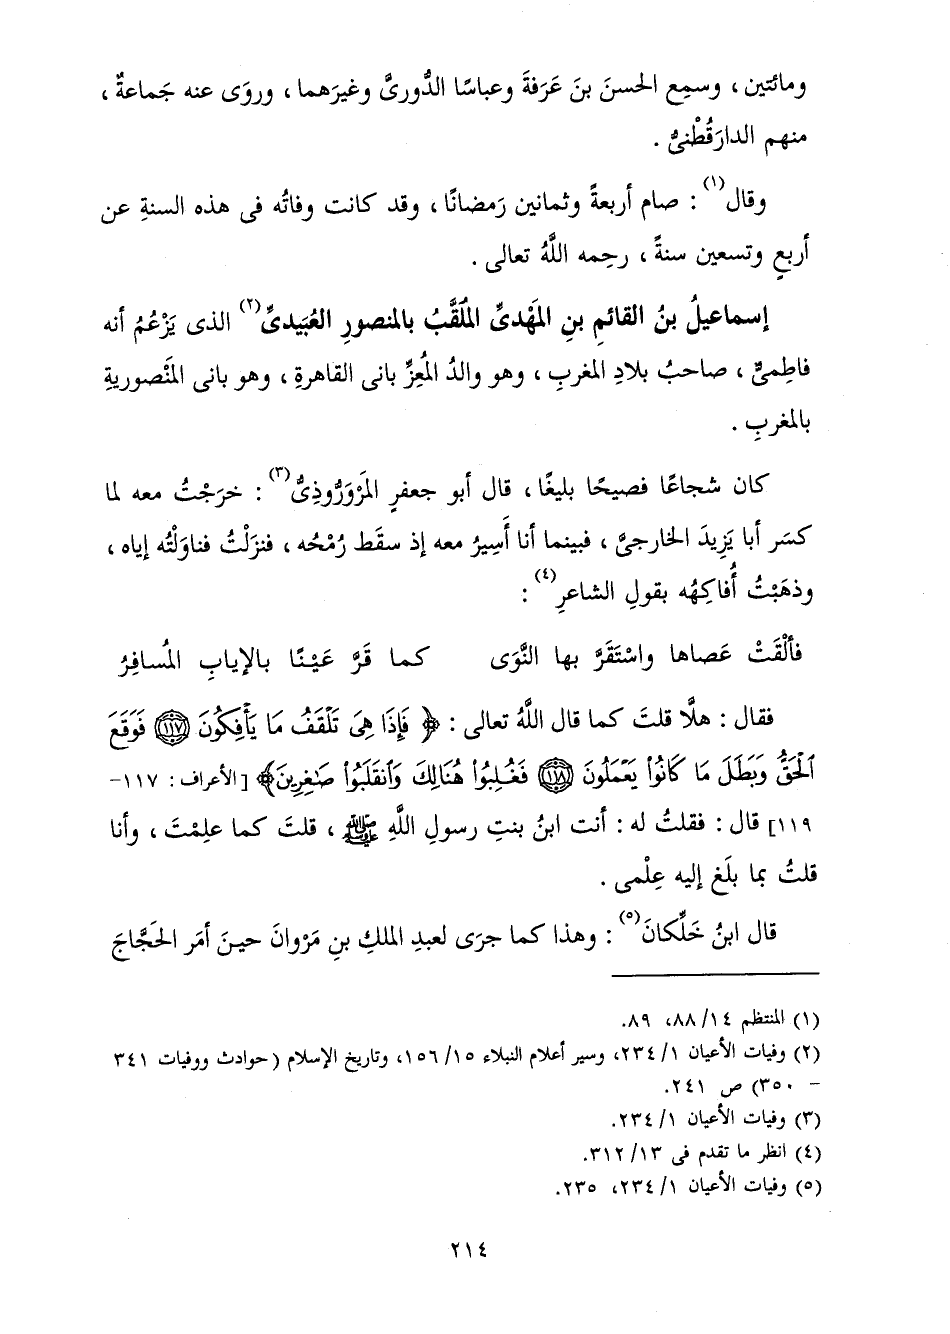 ومائتين ، وسمِع الحسنَ بنَ عَرَفةَ وعباسًا الدُّورىَّ وغيرَهما ، وروَى عنه جَماعةٌ ،
منهم الدارَقُطْنىُّ .
وقال(١) : صام أربعةً وثمانين رَمضانًا ، وقد كانت وفاتُه فى هذه السنةِ عن
أربعٍ وتسعين سنةً ، رحِمه اللَّهُ تعالى .
إسماعيلُ بنُ القائمِ بنِ المَهْدىِّ المُلَقَّبُ بالمنصورِ العُبَيدىِّ(٢) الذى يَزْعُمُ أنه
فاطِمىٌّ ، صاحبُ بلادِ المغربِ ، وهو والدُ المُعِزِّ بانى القاهرةِ ، وهو بانى المَنْصوريةِ
بالمغربِ .
كان شجاعًا فصيحًا بليغًا ، قال أبو جعفرٍ المَرْوَرُّوذِىُّ(٣) : خرَجْتُ معه لما
كسَر أبا يَزِيدَ الخارجىَّ ، فبينما أنا أَسِيرُ معه إذ سقَط رُمْحُه ، فنزَلْتُ فناوَلْتُه إياه ،
وذهَبْتُ أُفاكِهُه بقولِ الشاعرِ(٤) :
فألْقَتْ عَصاها واسْتَقَرَّ بها النَّوَى كما قَرَّ عَيْنًا بالإيابِ المُسافِرُ
فقال : هلَّا قلتَ كما قال اللَّهُ تعالى : ﴿ فَإِذَا هِىَ تَلْقَفُ مَا يَأْفِكُونَ ١١٧ فَوَقَعَ
ٱلْحَقُّ وَبَطَلَ مَا كَانُوا۟ يَعْمَلُونَ ١١٨ فَغُلِبُوا۟ هُنَالِكَ وَٱنقَلَبُوا۟ صَٰغِرِينَ﴾ [الأعراف : ١١٧-
١١٩] قال : فقلتُ له : أنت ابنُ بنتِ رسولِ اللَّهِ ﷺ ، قلتَ كما علِمْتَ ، وأنا
قلتُ بما بلَغ إليه عِلْمى .
قال ابنُ خَلِّكانَ(٥) : وهذا كما جرَى لعبدِ الملكِ بنِ مَرْوانَ حينَ أمَر الحَجَّاجَ
(١) المنتظم ١٤/ ٨٨، ٨٩.
(٢) وفيات الأعيان ١/ ٢٣٤، وسير أعلام النبلاء ١٥/ ١٥٦، وتاريخ الإسلام (حوادث ووفيات ٣٤١
- ٣٥٠) ص ٢٤١.
(٣) وفيات الأعيان ١/ ٢٣٤.
(٤) انظر ما تقدم فى ١٣/ ٣١٢.
(٥) وفيات الأعيان ١/ ٢٣٤، ٢٣٥.
٢١٤